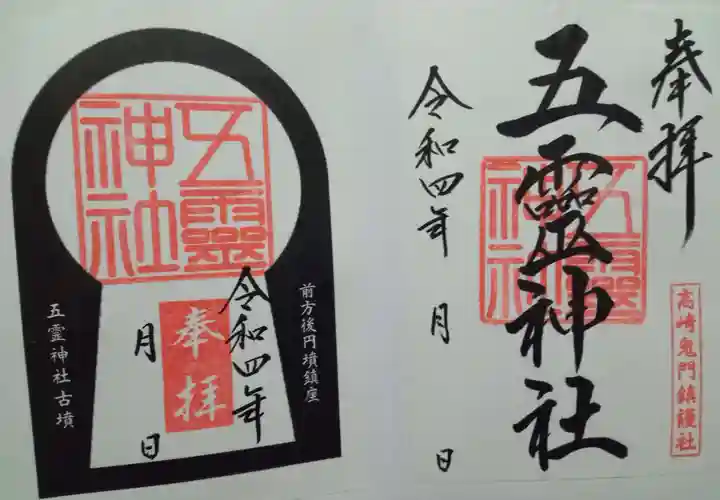 奉拝
五靈神社
五靈神社
高崎鬼門鎮護社
令和四年 月 日
五靈神社
前方後円墳鎮座
令和四年
奉拝
月 日
五霊神社古墳